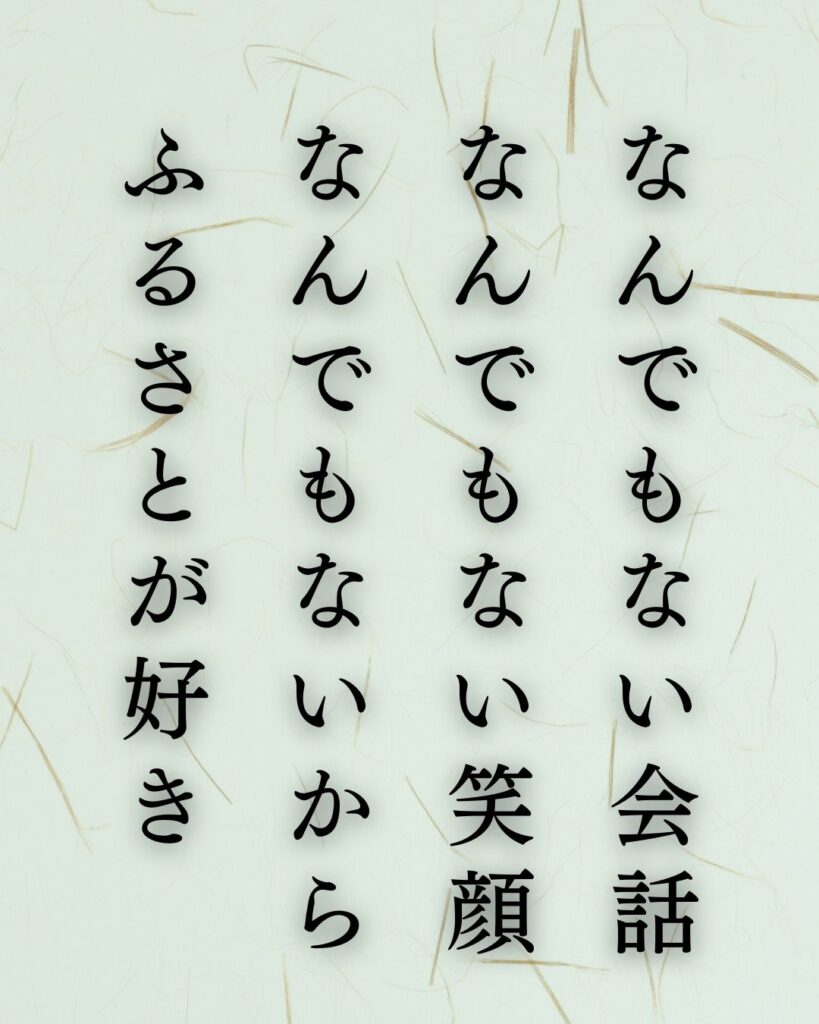 なんでもない会話
なんでもない笑顔
なんでもないから
ふるさとが好き